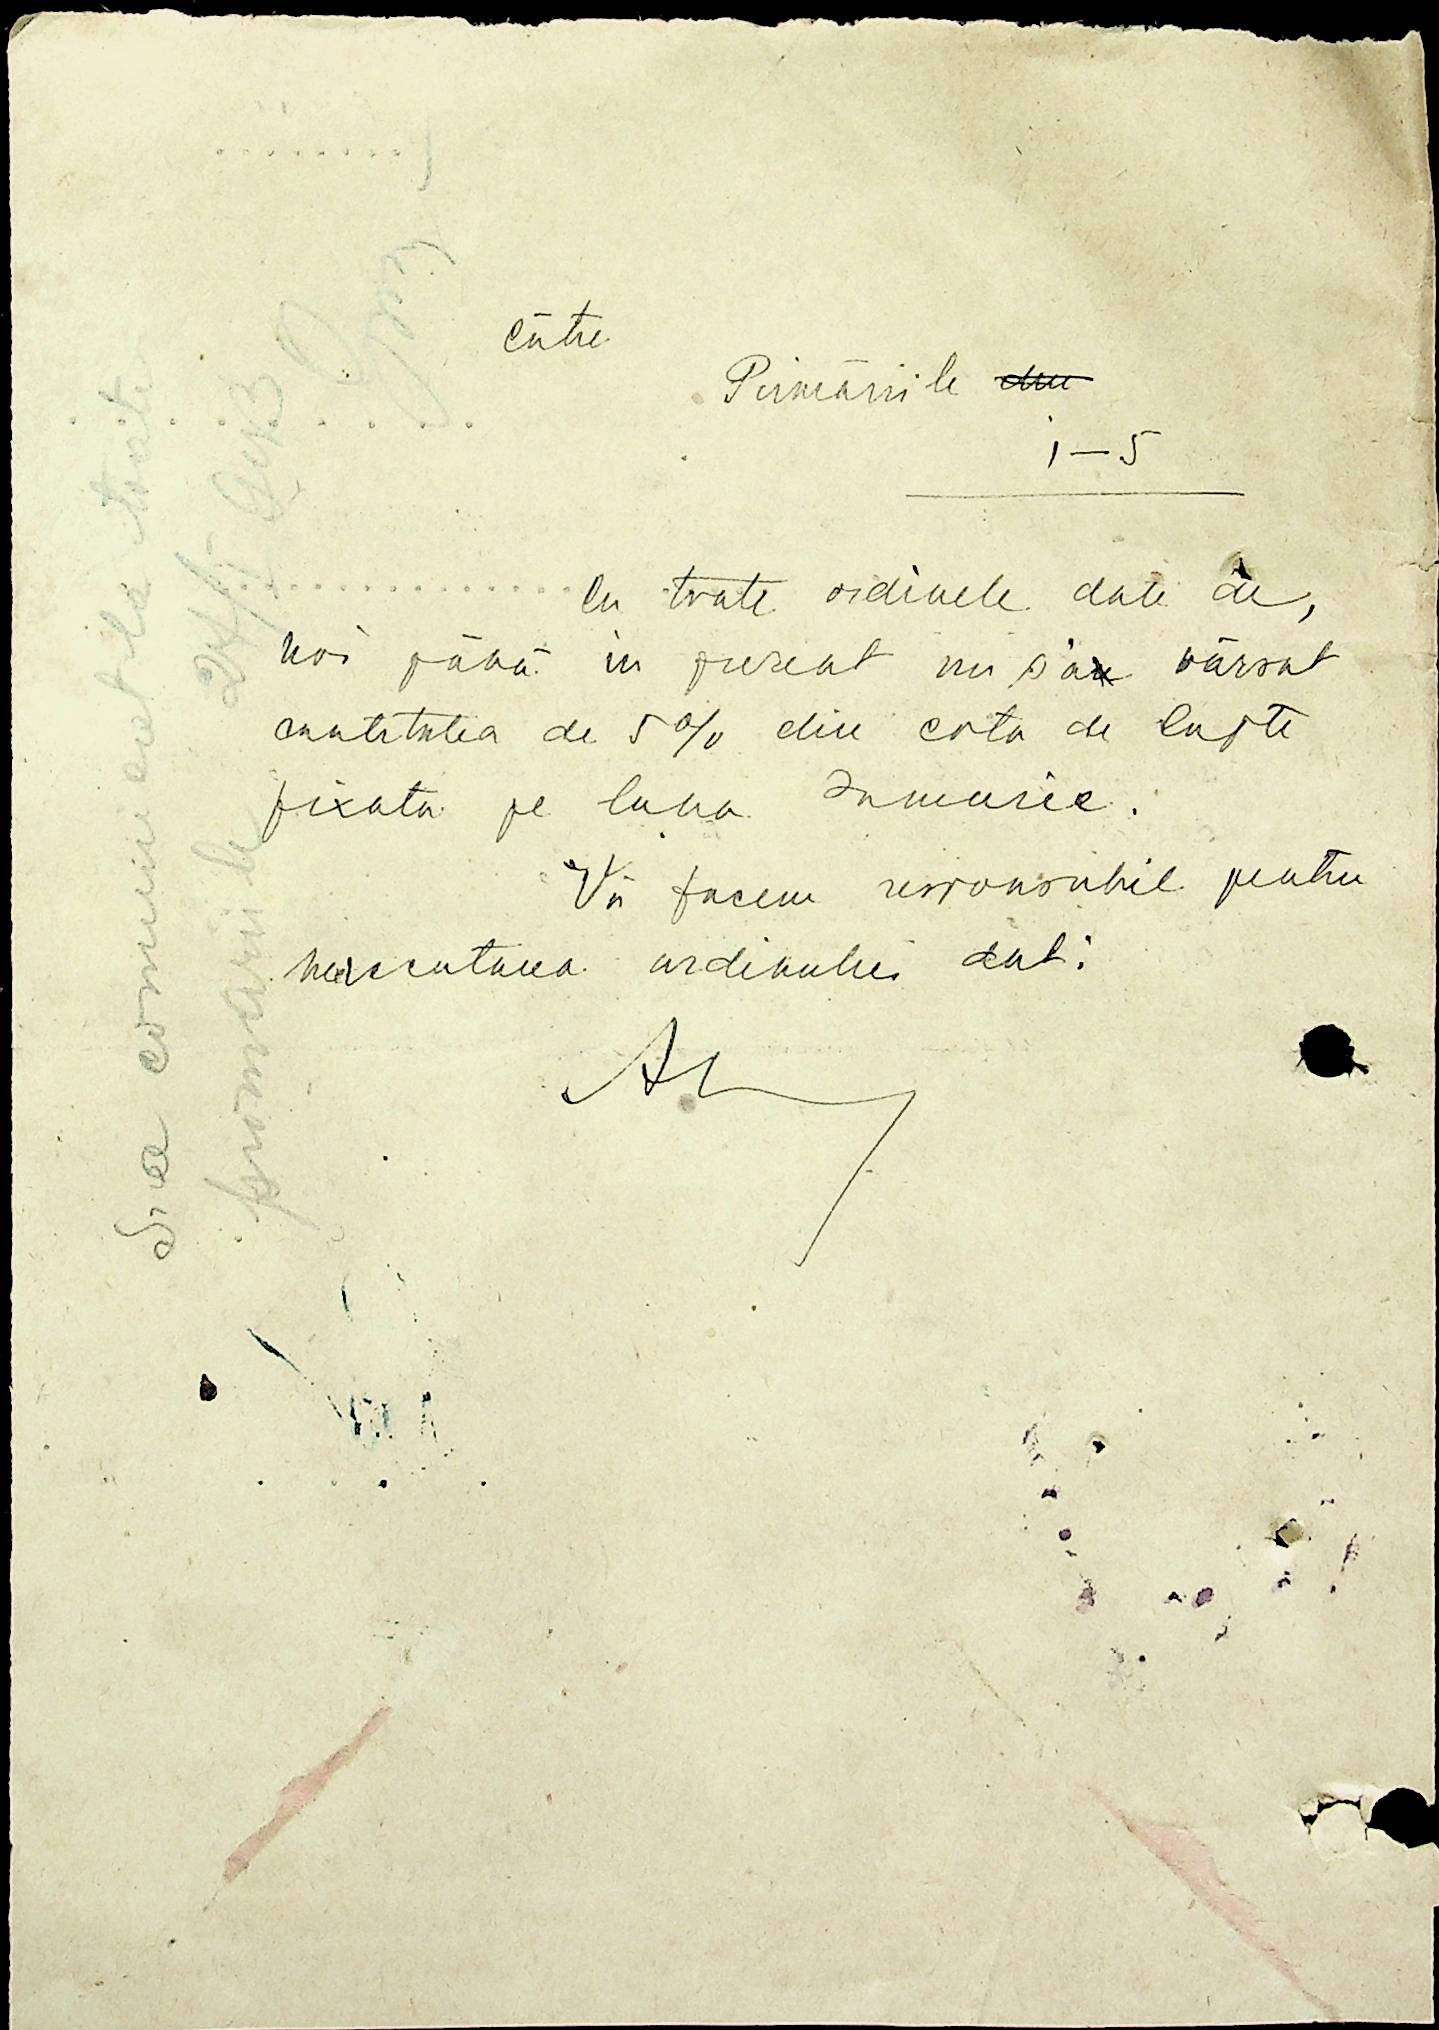 Către
Primăriile din
1-5
Cu toate ordinele date de,
noi până in prezent nu s'a vărsat
cantitatea de 5% din cota de lapte
fixata pe luna Ianuarie.
Vă facem responsabil pentru
neexcutarea ordinului dat.
S'a comunicat la toate
primariile